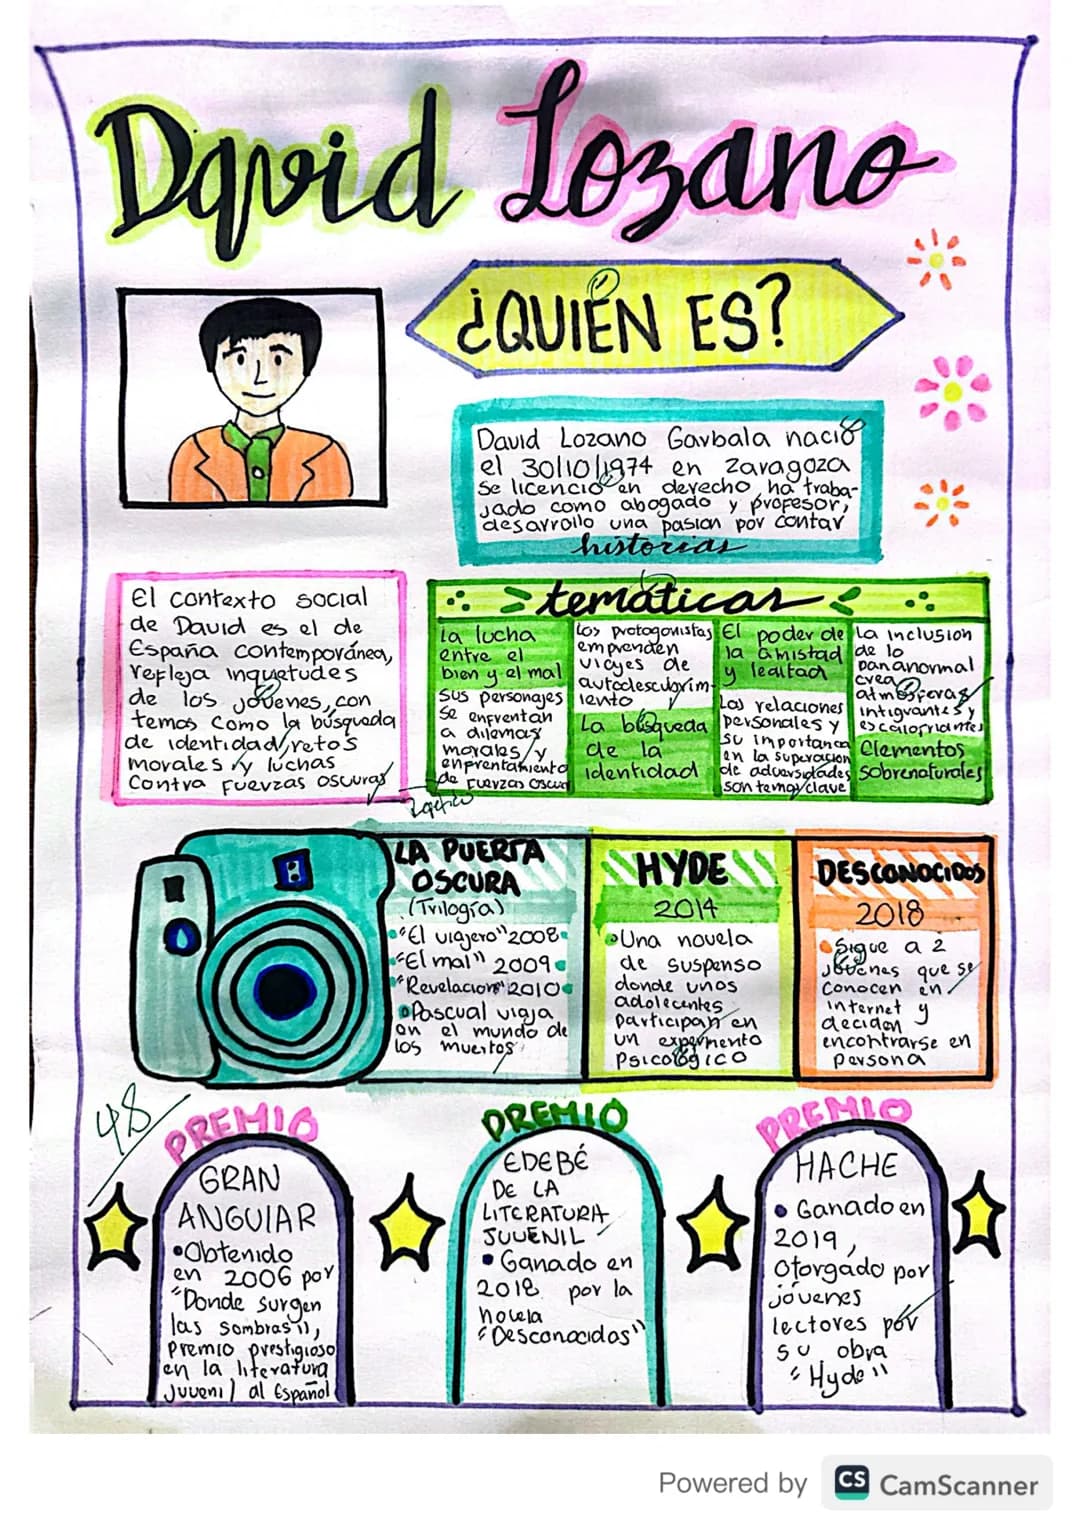 David Lozano
¿QUIÉN ES?
David Lozano Garbala nació
el 30/10/1974 en Zaragoza
se licenció en derecho ha traba-
jado como abogado y profesor,
desarrollo una pasion por contar
historias
El contexto social
de David es el de
España contemporánea,
refleja inquetudes
de los jóvenes, con
temas como la búsqueda
de identidad, retos
morales y luchas
contra fuerzas oscuras
temáticas
La lucha
entre el
bien y el mal
Sus personajes
se enfrentan
a dilemas
morales y
enfrentamiento
de fuerzas oscuras
Los protagonistas
emprenden
viajes de
autodescubrim-
iento
La búsqueda
de la
identidad
El poder de
la amistad
y lealtad
Las relaciones
personales y
su importanca
en la superación
de adversidades
son tema clave
La inclusion
de lo
pananormal
crea
atmósferas
intigvantes y
escalofriantes
Elementos
sobrenaturales
LA PUERTA
OSCURA
(Trilogía)
"El viajero" 2008
"El mal" 2009
"Revelacion" 2010
Pascual viaja
en el mundo de
los muertos
HYDE
2014
Una novela
de suspenso
donde unos
adolecentes
participan en
un expermento
psicológico
DESCONOCIDOS
2018
Sigue a 2
jóvenes que se
conocen en
internet y
deciden
encontrarse en
persona
48
PREMIO
GRAN
ANGUIAR
Obtenido
en 2006 por
"Donde surgen
las sombras",
premio prestigioso
en la literatura
juvenil al Español
PREMIO
EDEBÉ
DE LA
LITERATURA
JUVENIL
Ganado en
2018 por la
novela
"Desconocidos"
PREMIO
HACHE
Ganado en
2019,
otorgado por
jóvenes
lectores por
su obra
"Hyde"
Powered by CS CamScanner